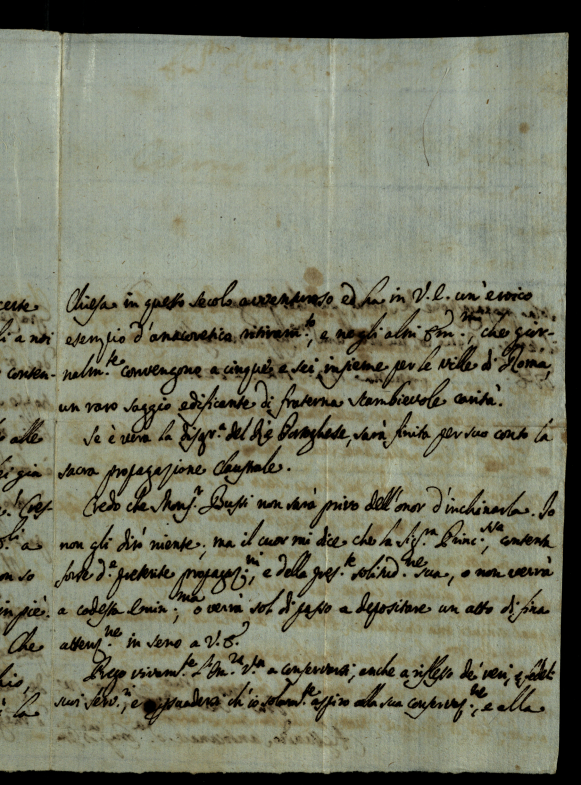 certe
Chiesa in questo secolo avventuroso ed ha in V. E. un' eroico
li a noi
esempio d'anacoretica ritiratez.ª, e negli altri Em.mi, che gior-
conten-
nalm.te convengono a cinque, e sei insieme per le ville di Roma,
un raro saggio edificante di fraterna scambievole carità.
alle
Se è vera la disgr.ª del Borghese, sarà finita per suo conto la
già
sacra propagazione clausrale.
Credo che Mons.r Bussi non sarà privo dell'onor d'inchinarla. Io
a
non gli dirò niente, ma il cuor mi dice che la Sig.ra Princ.ssa, contenta
so
forse d.ª preterite propagaz.ni, e della pres.te solitud.ne sua, o non verrà
in piè.
a codesta Emin.ma, o verrà sol di passo a depositare un atto di sua
Che
attenz.ne in seno a V. E.
Prego vivam.te l'Em.za V.ra a conservarsi, anche a riflesso de' veri, e fedeli
la
suoi serv.ri, e persuadersi ch'io solam.te aspiro alla sua conservaz.ne, e alla